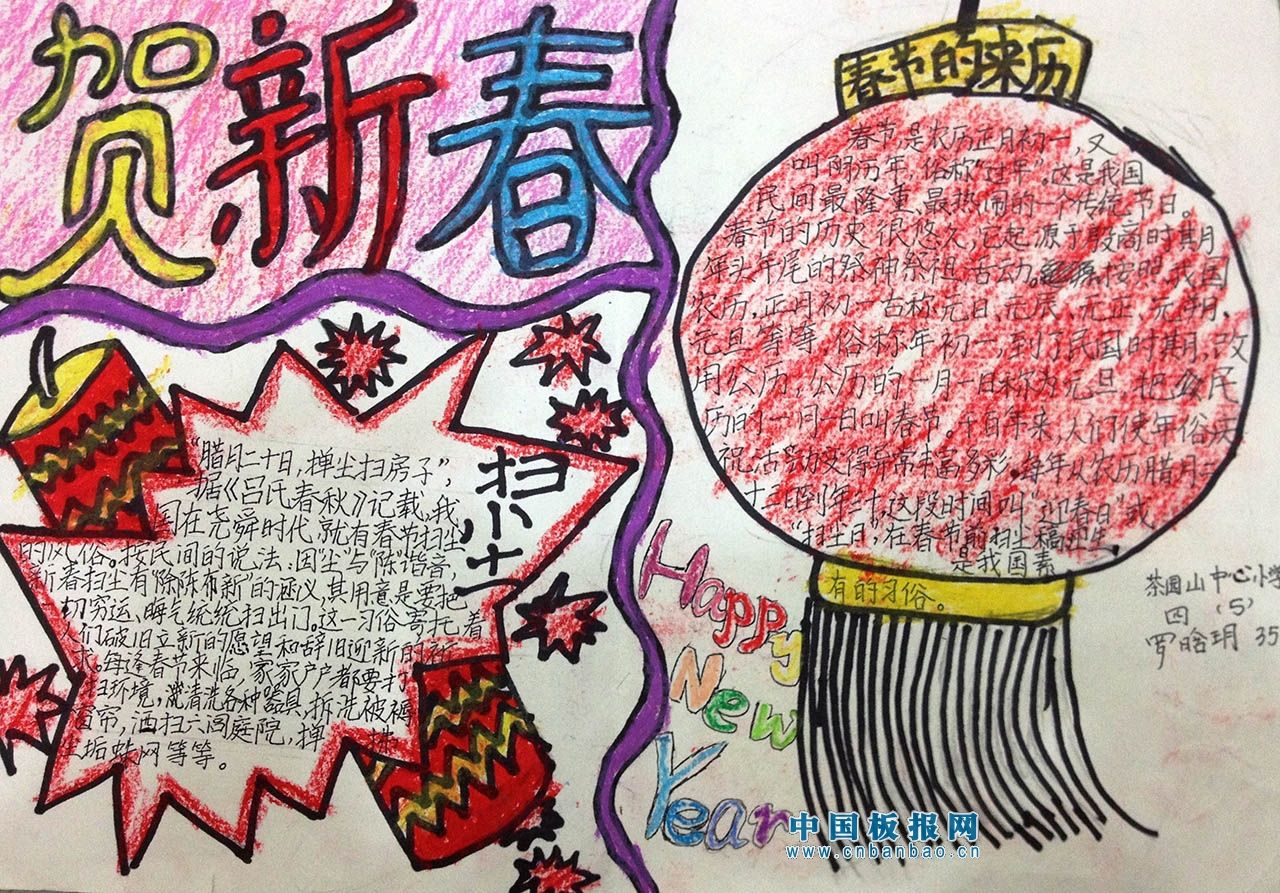 贺新春
春节的来历
春节,是农历正月初一,又
叫阴历年,俗称“过年”。这是我国
民间最隆重、最热闹的一个传统节日。
春节的历史很悠久,它起源于殷商时期
年头年尾的祭神祭祖活动。按照我国
农历,正月初一古称元日、元辰、元正、元朔、
元旦等等,俗称年初一,到了民国时期,改
用公历,公历的一月一日称为元旦,把农
历的一月一日叫春节。千百年来,人们使年俗庆
祝活动变得异常丰富多彩,每年从农历腊月二
十三日到年廿,这段时间叫“迎春日”或
“扫尘日”,在春节前扫尘搞卫生
是我国素
有的习俗。
扫尘
“腊月二十日,掸尘扫房子”,
据《吕氏春秋》记载,我
国在尧舜时代,就有春节扫尘
的风俗。按民间的说法:因“尘”与“陈”谐音,
新春扫尘有“除陈布新”的涵义,其用意是要把
一切穷运、晦气统统扫出门。这一习俗寄托着
人们破旧立新的愿望和辞旧迎新的祈
求,每逢春节来临,家家户户都要打
扫环境,清洗各种器具,拆洗被褥
窗帘,洒扫六闾庭院,掸拂
尘垢蛛网等等。
Happy
New
Year
茶园山中心小学
四(5)
罗晗玥 35
中国板报网
www.cnbanbao.cn